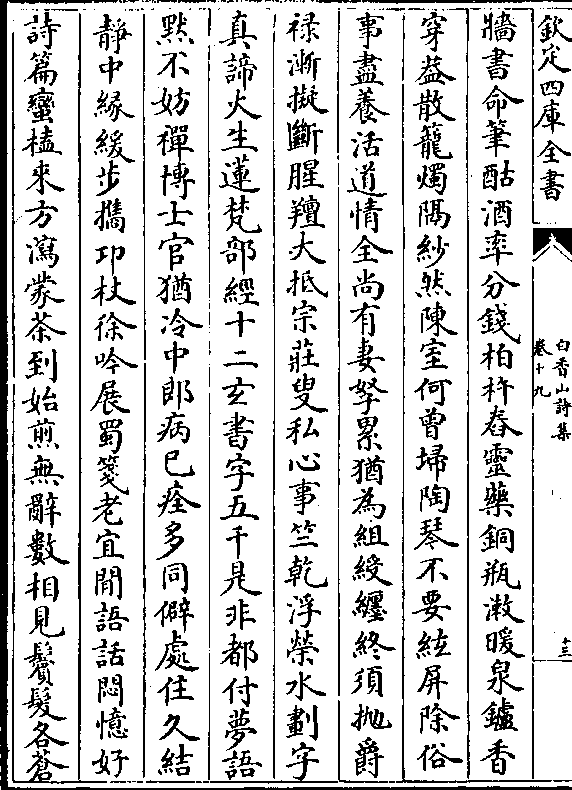 欽定四庫全書
白香山詩集
卷十九
十三
牆書命筆酤酒率分錢柏杵舂靈藥銅瓶漱暖泉鑪香
穿蓋散籠燭隔紗然陳室何曾埽陶琴不要絃屏除俗
事盡養活道情全尚有妻孥累猶為組綬纏終須抛爵
禄漸擬斷腥羶大抵宗莊叟私心事竺乾浮榮水劃字
真諦火生蓮梵部經十二玄書字五千是非都付夢語
黙不妨禪博士官猶冷中郎病已痊多同僻處住久結
靜中緣緩步攜卭杖徐吟展蜀箋老宜閒語話悶憶好
詩篇蠻榼來方瀉蒙茶到始煎無辭數相見鬢髮各蒼